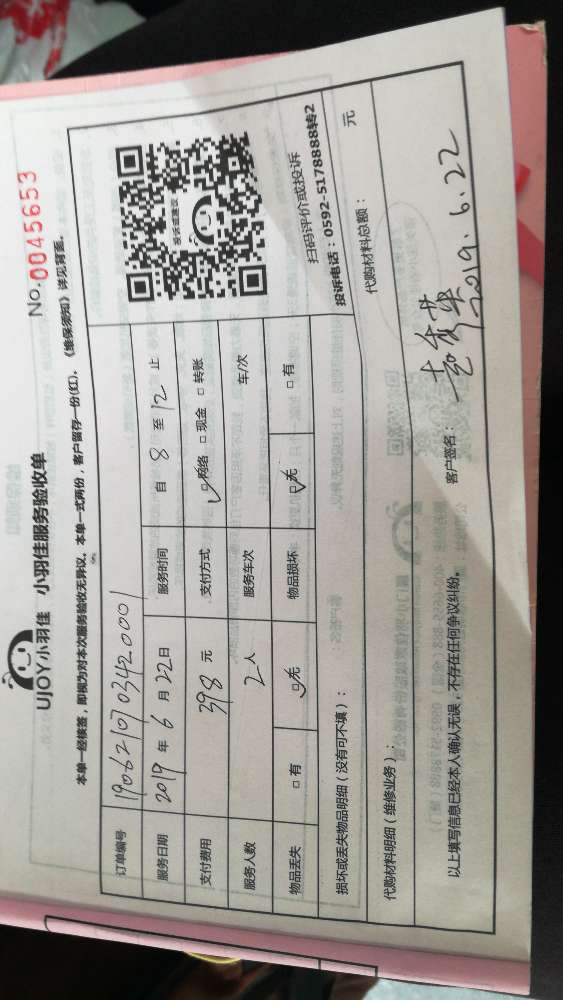 UJOY小羽佳 小羽佳服务验收单
No. 0045653
本单一经核签，即视为对本次服务验收无异议。本单一式两份，客户留存一份(红)。《维保须知》详见背面。
订单编号 1906210703420001
服务日期 2019 年 6 月 22 日 服务时间 自 8 至 12 止
支付费用 398 元 支付方式 ☑网络 □现金 □转账
服务人数 2 人 服务车次 车/次
物品丢失 □有 ☑无 物品损坏 ☑无 □有
投诉或建议
扫码评价或投诉
投诉电话：0592-5178888转2
损坏或丢失物品明细（没有可不填）：
代购材料明细（维修业务）： 代购材料总额： 元
以上填写信息已经本人确认无误，不存在任何争议纠纷。 客户签名：
2019.6.22